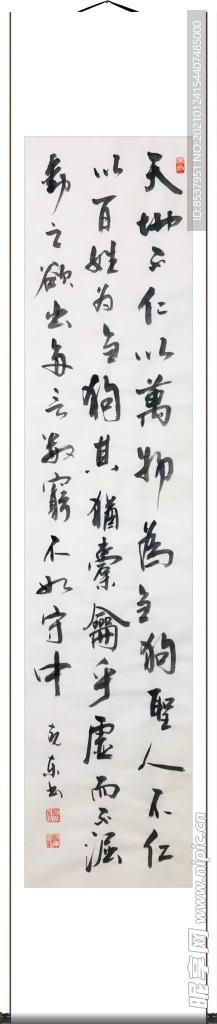 天地不仁以萬物為芻狗聖人不仁
以百姓為芻狗其猶橐龠乎虛而不淈
動之欲出每言數窮不如守中
克東書
ID:8537951 NO:20210124154407485000
昵享网 www.nipic.cn